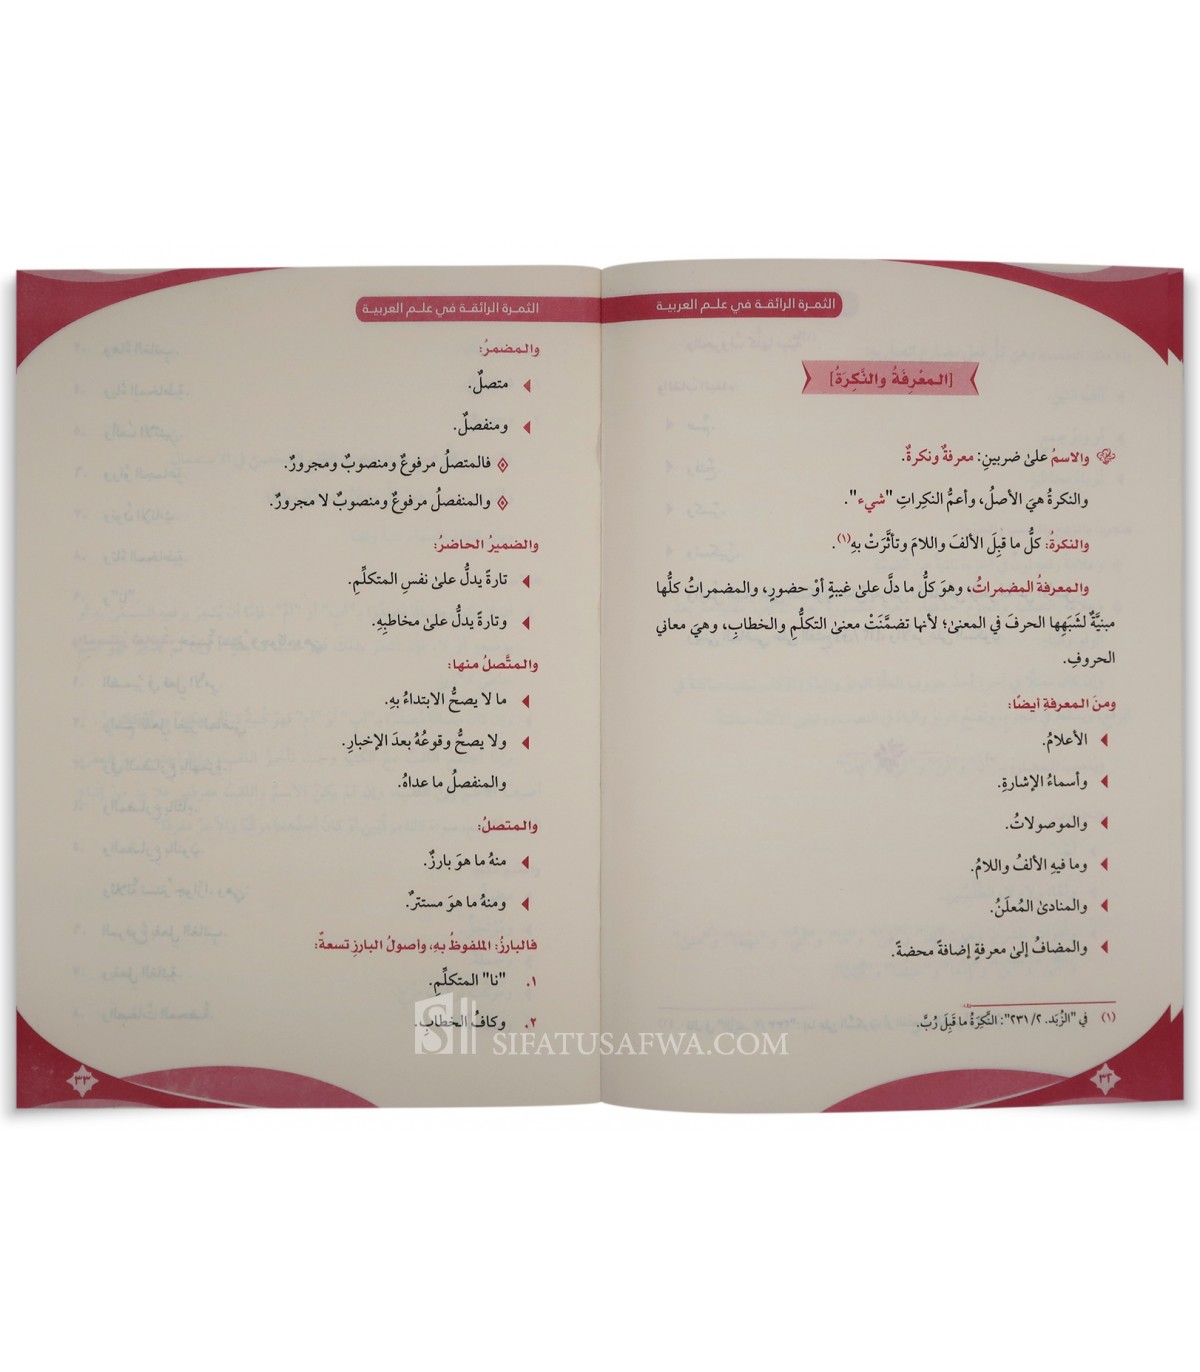 الثمرة الرائقة في علم العربية
[المعْرِفَةُ والنَّكِرَةُ]
والاسمُ علىٰ ضربينِ: معرفةٌ ونكرةٌ.
والنكرةُ هيَ الأصلُ، وأعمُّ النكِراتِ "شيء".
والنكرةُ: كلُّ ما قبِلَ الألفَ واللامَ وتأثَّرَتْ بهِ(١).
والمعرفةُ المضمراتُ، وهوَ كلُّ ما دلَّ علىٰ غيبةٍ أوْ حضورٍ، والمضمراتُ كلُّها
مبنيَّةٌ لشَبَهِها الحرفَ في المعنىٰ؛ لأنها تضمَّنَتْ معنىٰ التكلُّمِ والخطابِ، وهيَ معاني
الحروفِ.
ومنَ المعرفةِ أيضًا:
الأعلامُ.
وأسماءُ الإشارةِ.
والموصولاتُ.
وما فيهِ الألفُ واللامُ.
والمنادىٰ المُعلَنُ.
والمضافُ إلىٰ معرفةٍ إضافةً محضةً.
(١) في "الزُبَد. ٢/ ٢٣١": النَّكِرَةُ ما قَبِلَ رُبَّ.
٣٢
الثمرة الرائقة في علم العربية
والمضمرُ:
متصلٌ.
ومنفصلٌ.
فالمتصلُ مرفوعٌ ومنصوبٌ ومجرورٌ.
والمنفصلُ مرفوعٌ ومنصوبٌ لا مجرورٌ.
والضميرُ الحاضرُ:
تارةً يدلُّ علىٰ نفسِ المتكلِّمِ.
وتارةً يدلُّ علىٰ مخاطبِهِ.
والمتَّصلُ منها:
ما لا يصحُّ الابتداءُ بهِ.
ولا يصحُّ وقوعُهُ بعدَ الإخبارِ.
والمنفصلُ ما عداهُ.
والمتصلُ:
منهُ ما هوَ بارزٌ.
ومنهُ ما هوَ مستترٌ.
فالبارزُ: الملفوظُ بهِ، وأصولُ البارزِ تسعةٌ:
١. "نا" المتكلِّمِ.
٢. وكافُ الخطابِ.
٣٣
SIFATUSAFWA.COM